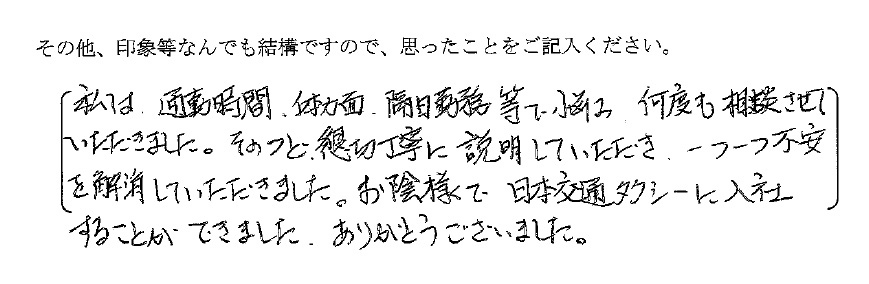 その他、印象等なんでも結構ですので、思ったことをご記入ください。
私は、通勤時間、体力面、隔日勤務等で悩み、何度も相談させて
いただきました。そのつど、懇切丁寧に説明していただき、一つ一つ不安
を解消していただきました。お陰様で日本交通タクシーに入社
することができました。ありがとうございました。